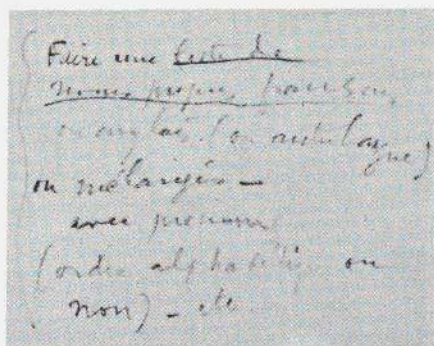 Faire une liste de
noms propres français,
ou anglais (ou autre langue)
ou mélangés -
avec prénoms
(ordre alphabétique ou
non) - etc.